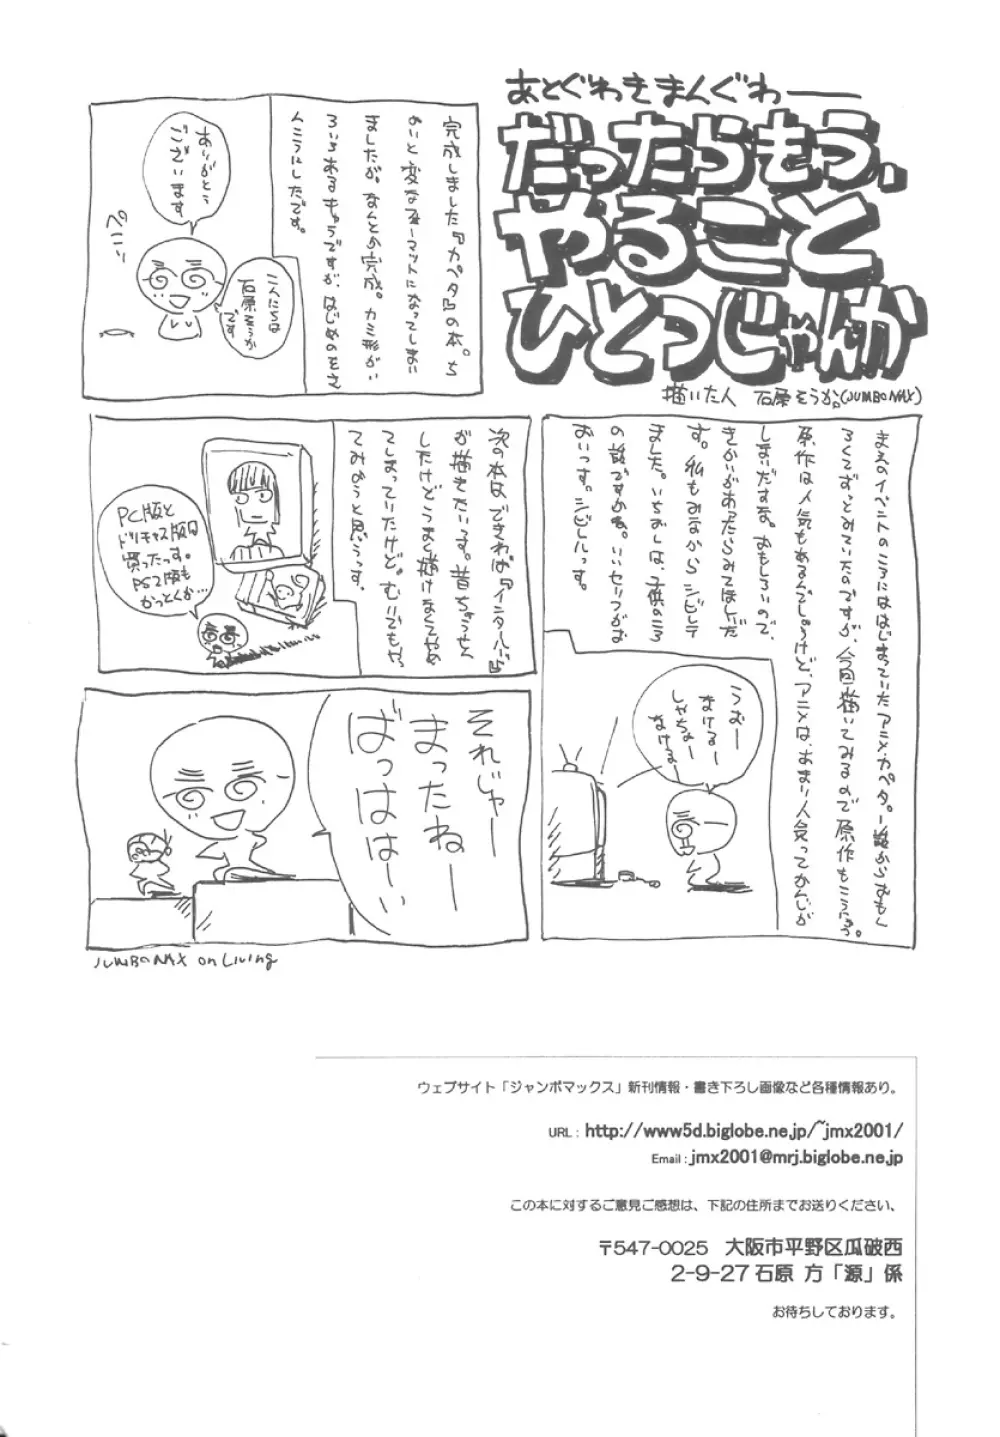 あとぐわきまんぐわ——
だったらもう、
やること
ひとつじゃんか
描いた人 石原そうか。(JUMBOMAX)
完成しました『カペタ』の本。ち
ょいと変なフォーマットになってしまい
ましたが、なんとか完成。カミ形がい
ろいろあるキャラですが、はじめのをさ
んこうにしたです。
ありがとう
ございます
ペこり
こんにちは
石原そうか
です
まえのイベントのころにははじまっていたアニメ・カペタ。一話からおもし
ろくてずっとみていたのですが、今回描いてみるので原作もこうにゅう。
原作は人気もあるんでしょうけど、アニメは、あまり人気ってかんじが
しまいだすな。おもしろいので、
きかいがあったらみてほしいだ
す。私もみながらシビレテ
ました。いちおしは、子供のころ
の話ですかね。いいセリフがお
おいっす。シビレルっす。
うむー
なけるー
しゃちょー
なけるー
次の本はできれば『イニタルD』
が描きたいっす。昔ちょうせん
したけどうまく描けなくてやめ
てしまっていたけど。むりでもや
てみようと思うっす。
PC版と
ドリキャス版は
買ったっす。
PS2版も
かっとくか…
それじゃー
まったねー
ばっはは〜い
JUMBOMAX on Living
ウェブサイト「ジャンボマックス」新刊情報・書き下ろし画像など各種情報あり。
URL : http://www5d.biglobe.ne.jp/~jmx2001/
Email : jmx2001@mrj.biglobe.ne.jp
この本に対するご意見ご感想は、下記の住所までお送りください、
〒547-0025 大阪市平野区瓜破西
2-9-27 石原 方「源」係
お待ちしております。